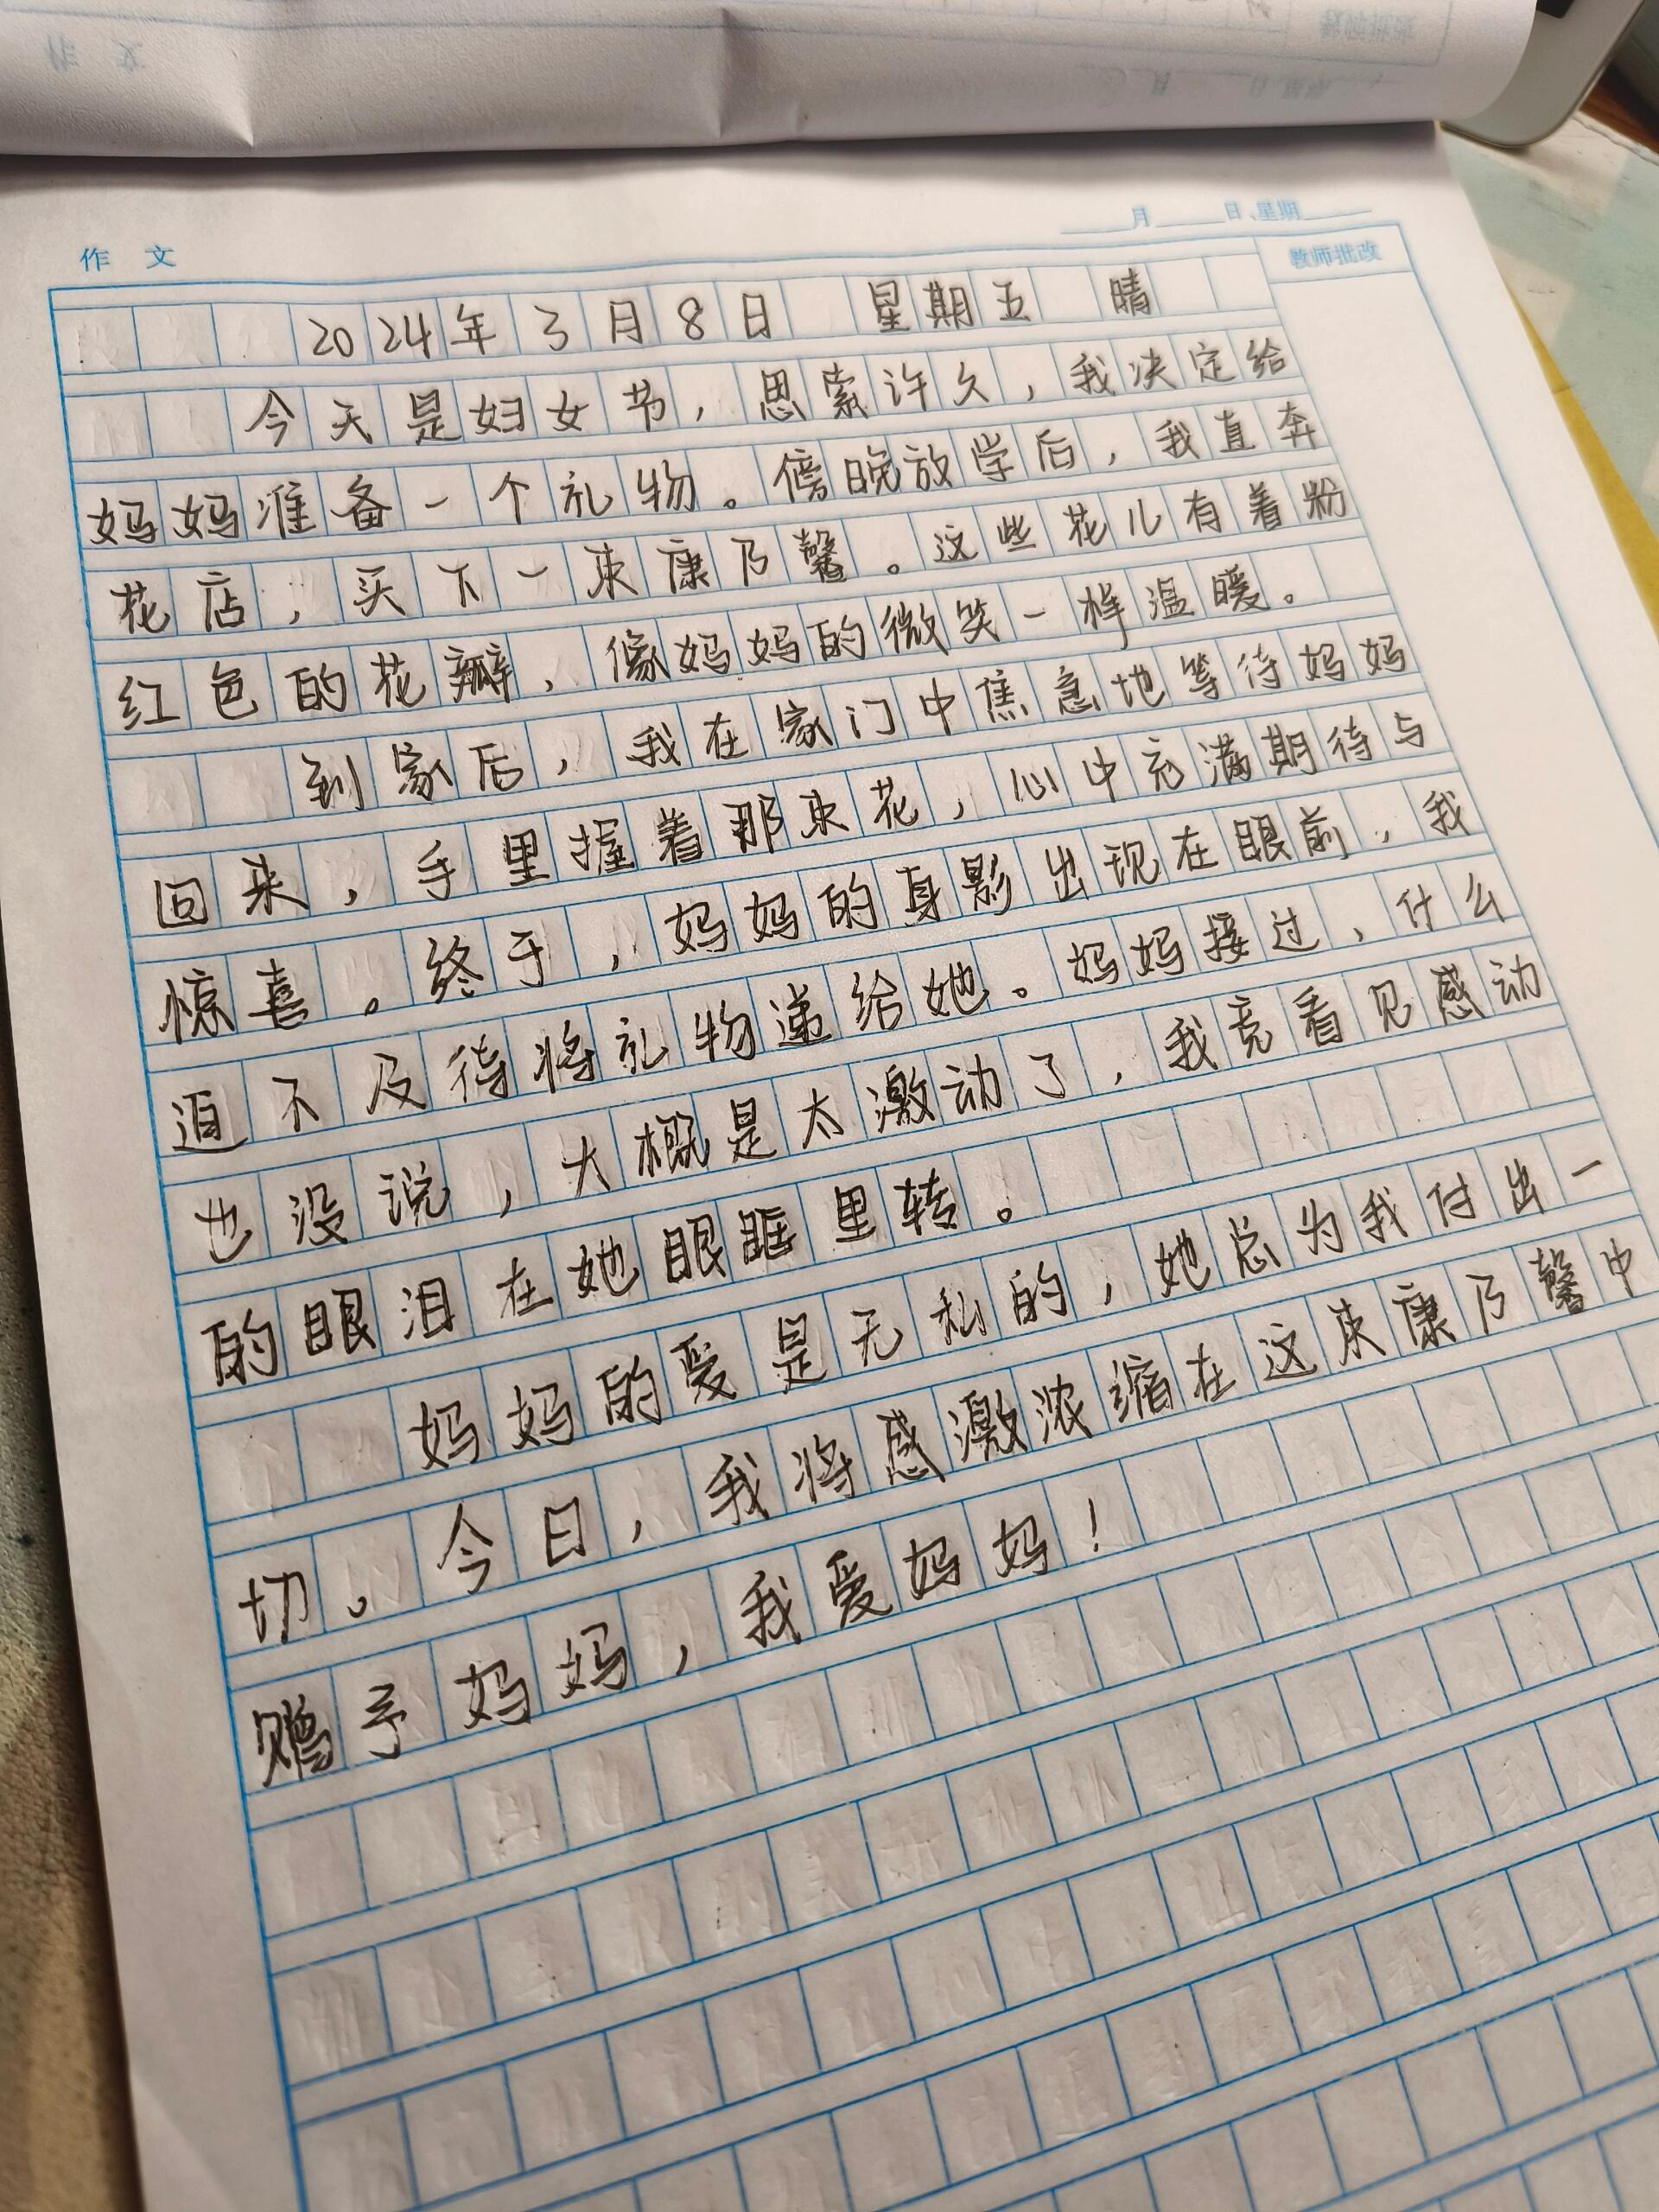 月 日 星期
作 文
教师批改
2024年3月8日 星期五 晴
今天是妇女节，思索许久，我决定给
妈妈准备一个礼物。傍晚放学后，我直奔
花店，买下一束康乃馨。这些花儿有着粉
红色的花瓣，像妈妈的微笑一样温暖。
到家后，我在家门中焦急地等待妈妈
回来，手里握着那束花，心中充满期待与
惊喜。终于，妈妈的身影出现在眼前，我
迫不及待将礼物递给她。妈妈接过，什么
也没说，大概是太激动了，我竟看见感动
的眼泪在她眼眶里转。
妈妈的爱是无私的，她总为我付出一
切。今日，我将感激浓缩在这束康乃馨中
赠予妈妈，我爱妈妈！